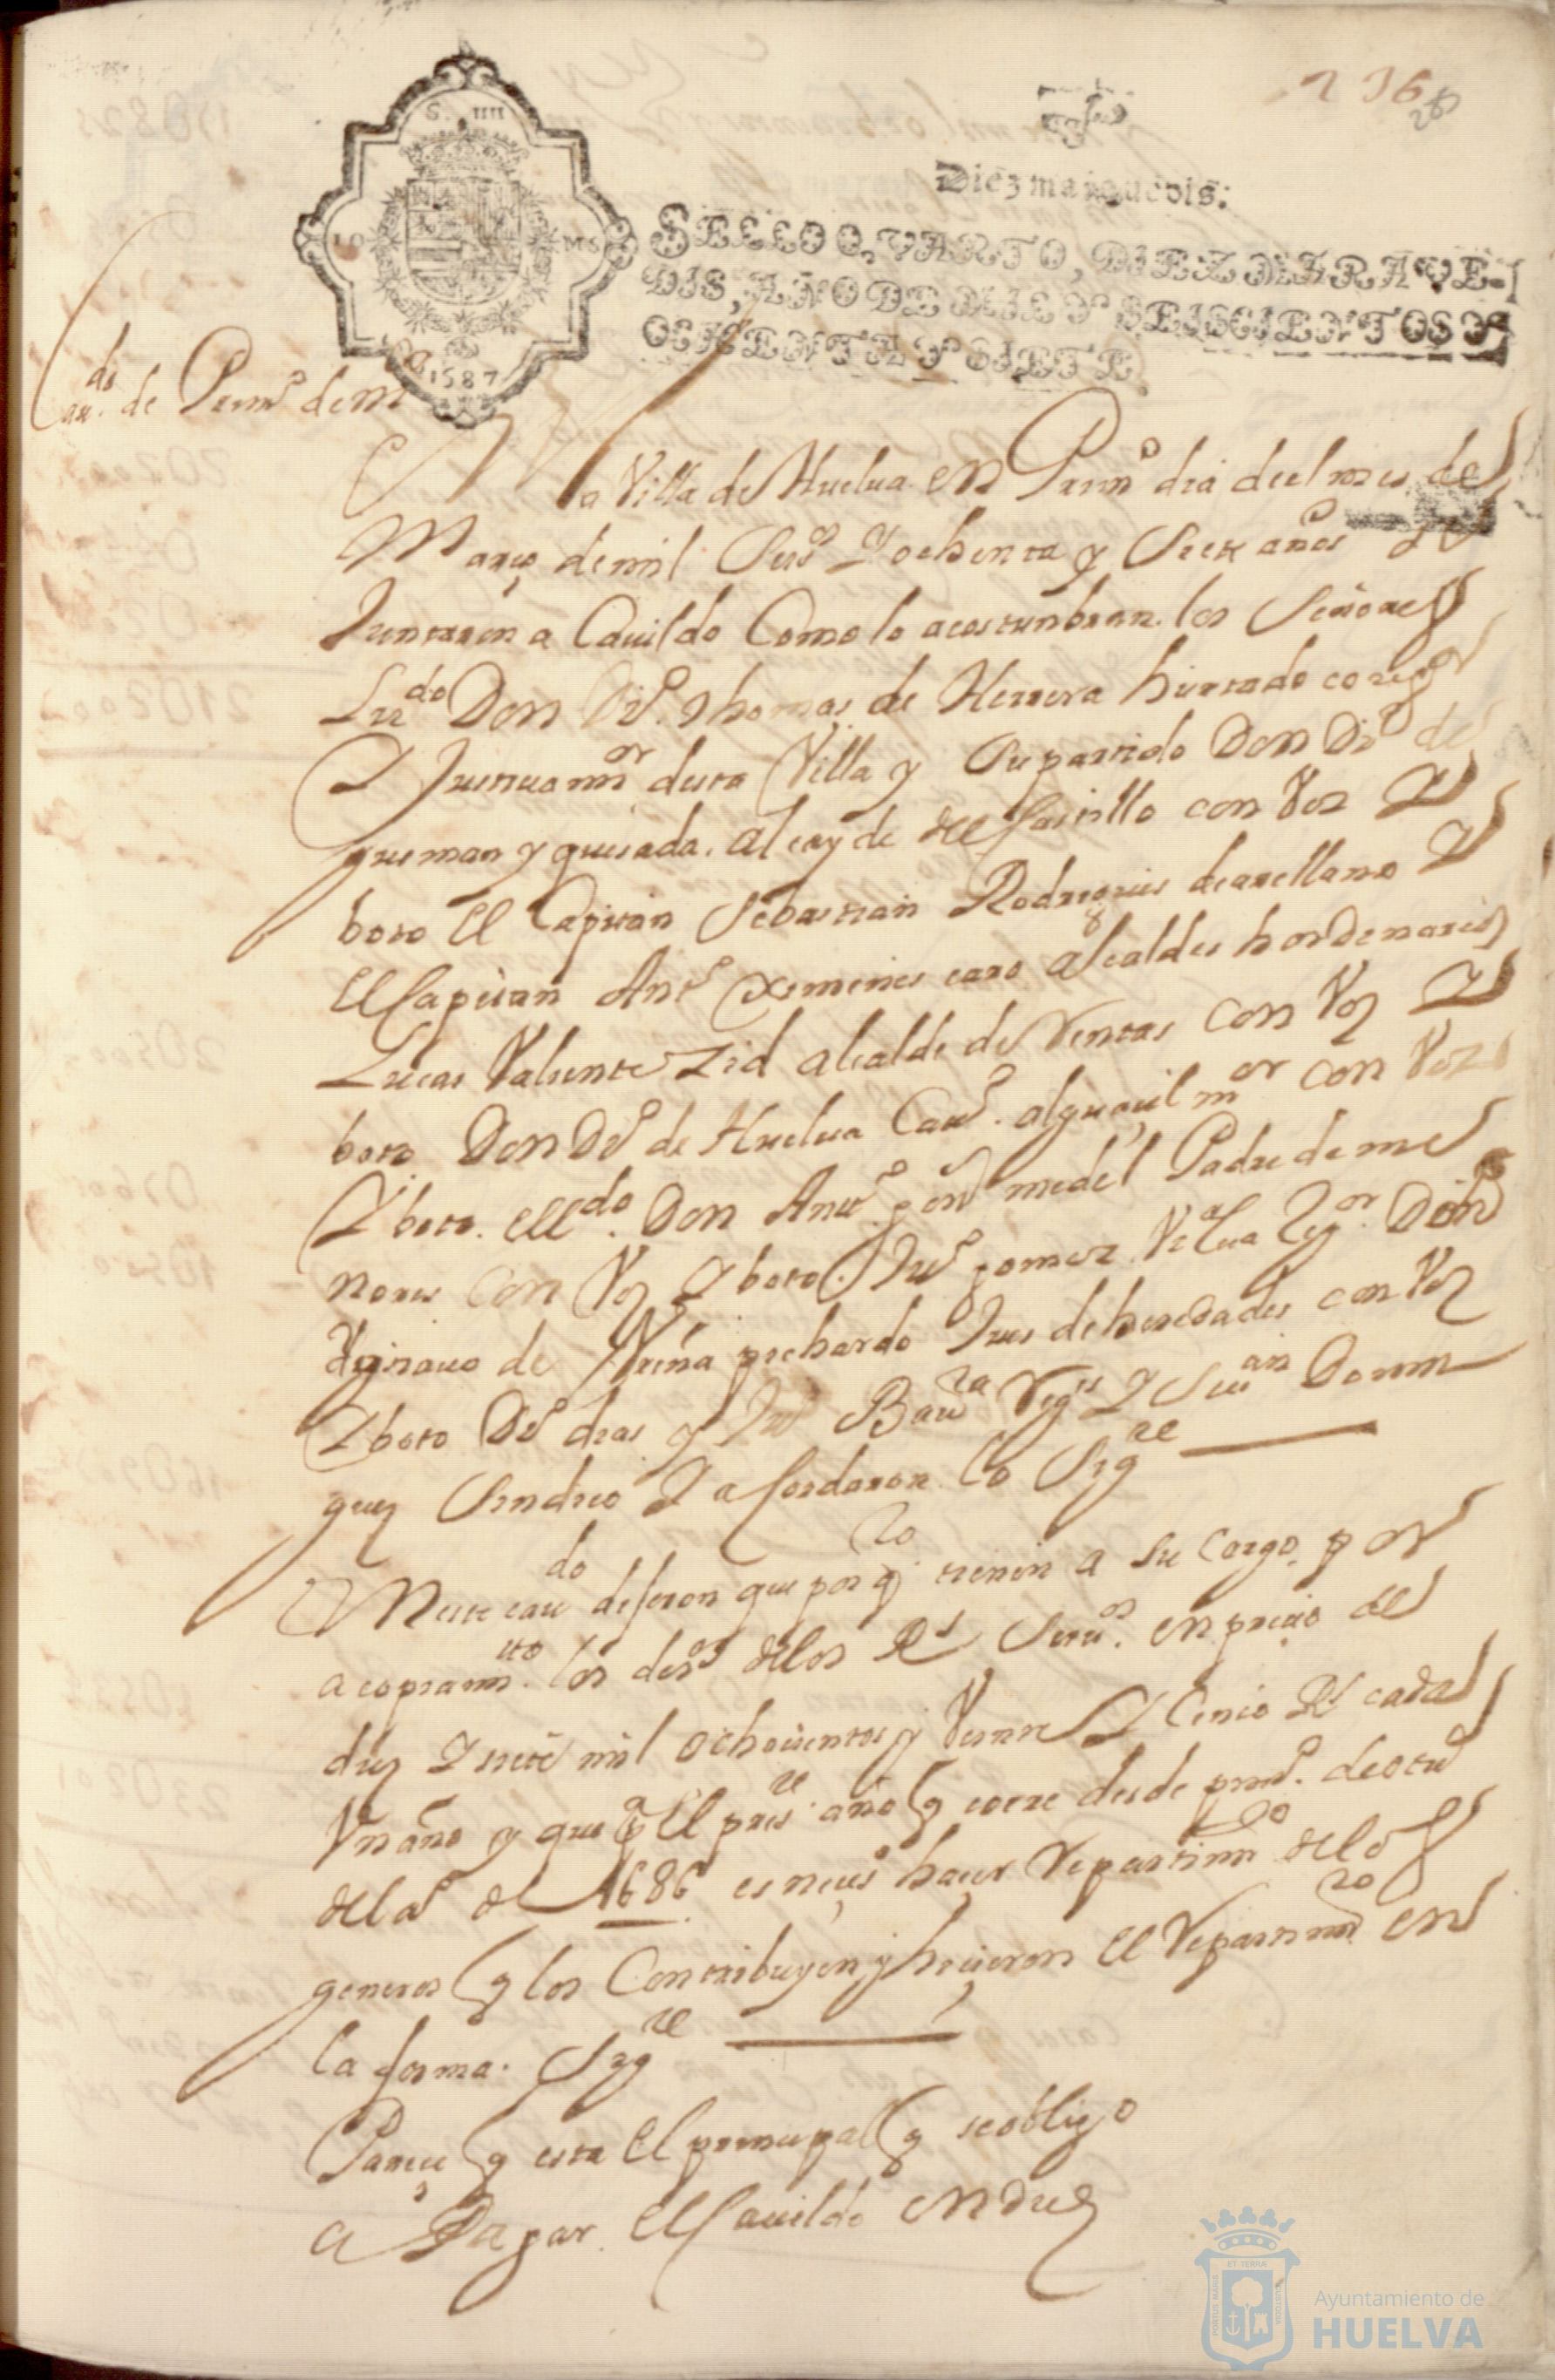 236
285
Diez maravedis:
SELLO QVARTO, DIEZ MARAVE-
DIS, AÑO DE MIL Y SEISCIENTOS Y
OCHENTA Y SIETE
S. IIII
10 MS
1687
Cau.do de Prim.o de M
En la Villa de Huelua en Prim.o dia del mes de
Março de mil Seis.os y ochenta y Siete años se
Juntaron a Cauildo Como lo acostunbran los Señores
Liz.do Don Di.o thomas de Herrera hurtado coreg.or
y Justicia m.or desta Villa y Su partido Don Di.o de
gusman y quesada alcayde del Castillo con Vos y
boto El Capitan Sebastian Rodrigues de arellano y
El Capitan Ant.o Ximenes caro alcaldes hordenarios
Lucas Valiente Zid alcalde de Ventas con Voz y
boto Don Di.o de Huelua Cau.o alguaçil m.or con Voz
y boto. el l.do Don Ant.o medel Padre de me
nores con Voz y boto. Ju.o gomez Reg.or Don
de pichardo Jues de heredades con Voz
y boto Di.o dias y Ju.o Bau.ta Reg.s y Seu.an Domin
guez Sindico y acordaron lo Sig.te
En este cau.do dijeron que por q tienen a su cargo por
acopiam.to los der.os de los R.s Seru.os en precio de
diez y siete mil ochocientos y Veinte y Cinco R.s cada
Vn año y que p.a El pres.te año q corre desde prim.o de otu.e
del a.o de 1686 es neces.o hacer Repartim.to de los
generos q los Contribuyen y hicieron El Repartim.to en
la forma Sig.te
Parece q esta El principal q se obligo
a Pagar El Cauildo en diez
Ayuntamiento de
HUELVA